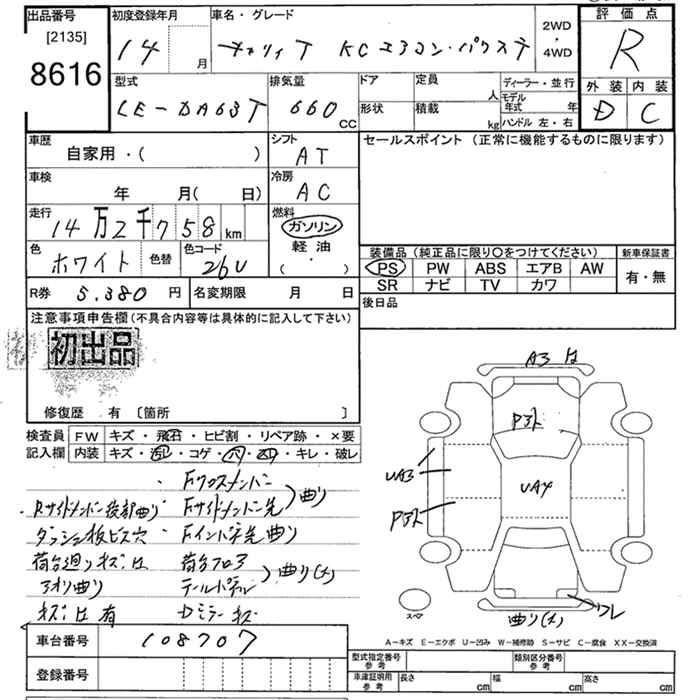 出品番号 初度登録年月 車名・グレード 2WD・4WD 評価点
[2135]
8616
14 月 キャリィT KCエアコン・パワステ R
型式 排気量 ドア 定員 人 ディーラー・並行 外装 内装
LE-DA63T 660 CC 形状 積載 kg モデル年式 年 D C
ハンドル 左・右
車歴 シフト セールスポイント (正常に機能するものに限ります)
自家用・( ) AT
車検 冷房
年 月( 日) AC
走行 燃料
14万2千758 km ガソリン
軽油
( ・ )
色 ホワイト 色替 色コード 26U
装備品 (純正品に限り〇をつけてください) 新車保証書
PS PW ABS エアB AW 有・無
SR ナビ TV カワ
R券 5,380 円 名変期限 月 日 後日品
注意事項申告欄 (不具合内容等は具体的に記入して下さい)
初出品
修復歴 有 [箇所 ]
検査員 FW キズ・飛石・ヒビ割・リペア跡・×要
記入欄 内装 キズ・汚レ・コゲ・穴・凹・キレ・破レ
・Fクロスメンバー
・Rサイドメンバー後部曲り Fサイドメンバー先 曲り
ダッシュ板ビス穴 Fインパネ先曲り
荷台廻りキズ凹 荷台フロア
アオリ曲り テールパネル 曲り(大)
キズ凹有 Dミラーキズ
A3 凹
Pヌト
UA3
UA4
Pヌト
スペア
曲り(大)
ワレ
車台番号 108707
登録番号
A-キズ E-エクボ U-凹み W-補修跡 S-サビ C-腐食 XX-交換済
型式指定番号 参考 類別区分番号 参考
車庫証明用 参考 長さ cm 幅 cm 高さ cm